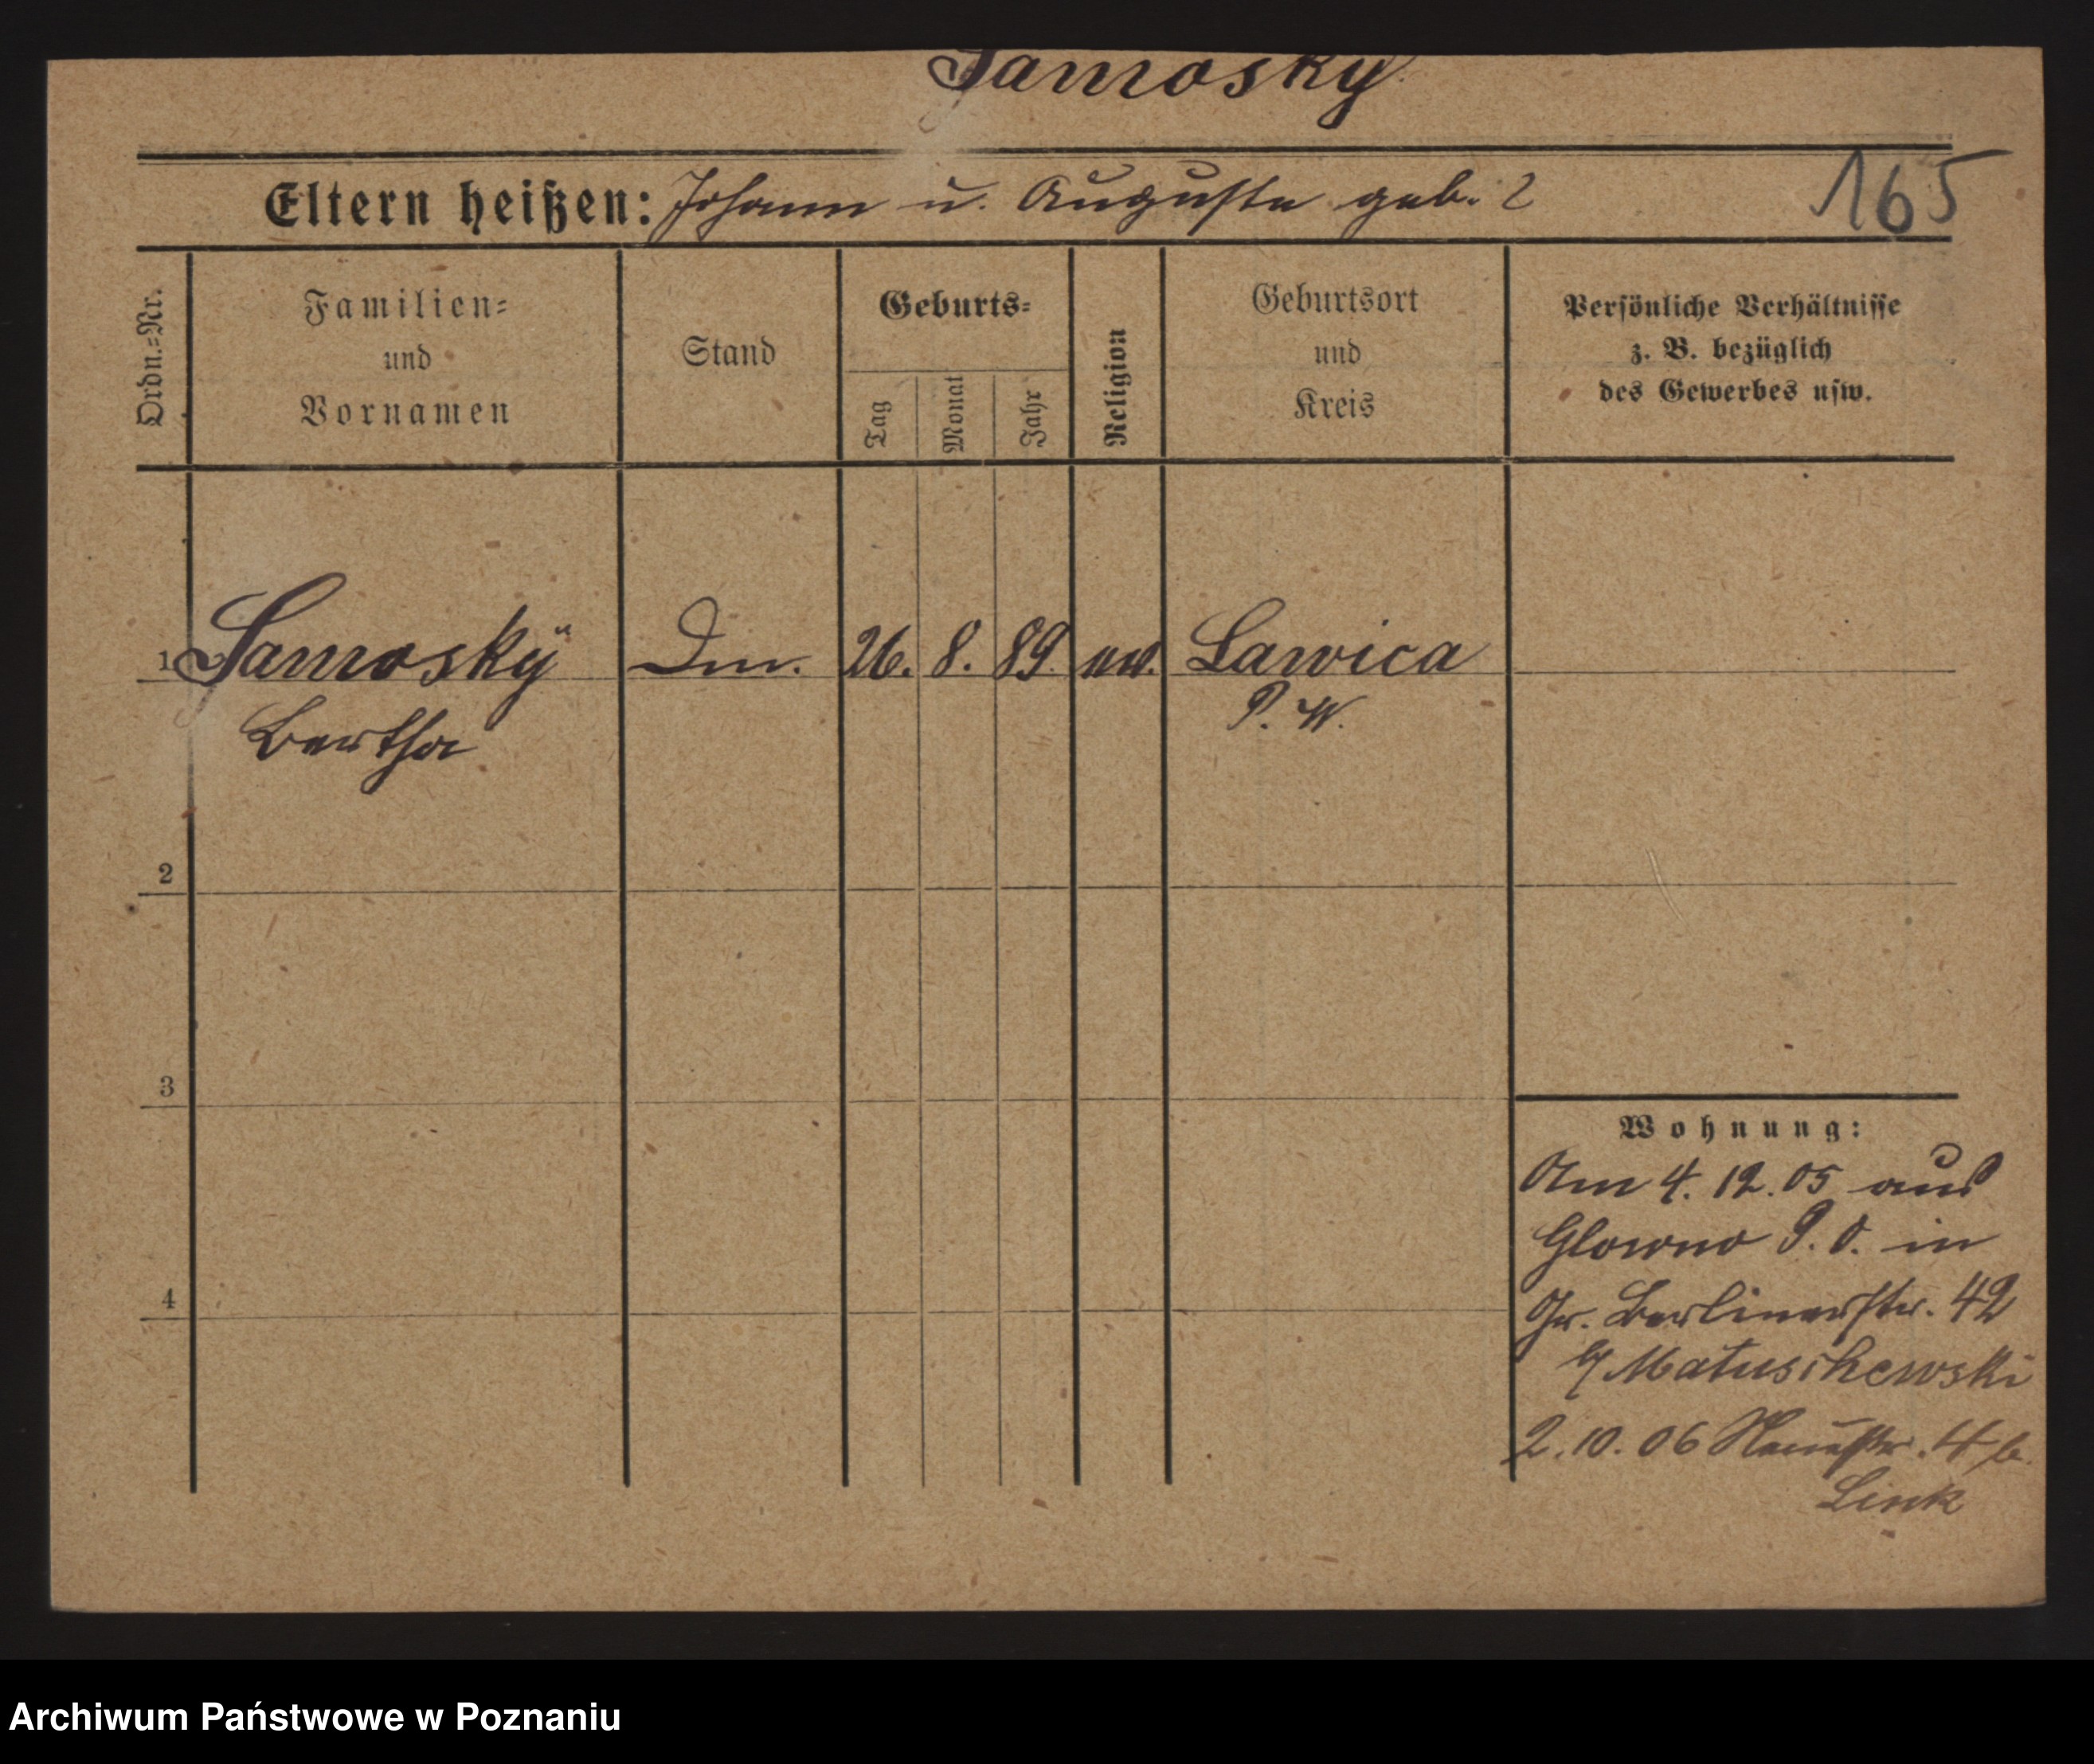 Samosky
Eltern heißen: Johann u. Auguste geb. ?
165
Ordn.-Nr.
Familien-
und
Vornamen
Stand
Geburts-
Tag
Monat
Jahr
Religion
Geburtsort
und
Kreis
Persönliche Verhältnisse
z. B. bezüglich
des Gewerbes usw.
1 Samosky 26. 8. 89. ev. Lawica
Bertha P. W.
2
3
4
Wohnung:
Am 4. 12. 05 aus
Glowno P. O. in
Gr. Berlinerstr. 42
b/ Matuschewski
2. 10. 06 Neuestr. 4 b.
Link
Archiwum Państwowe w Poznaniu